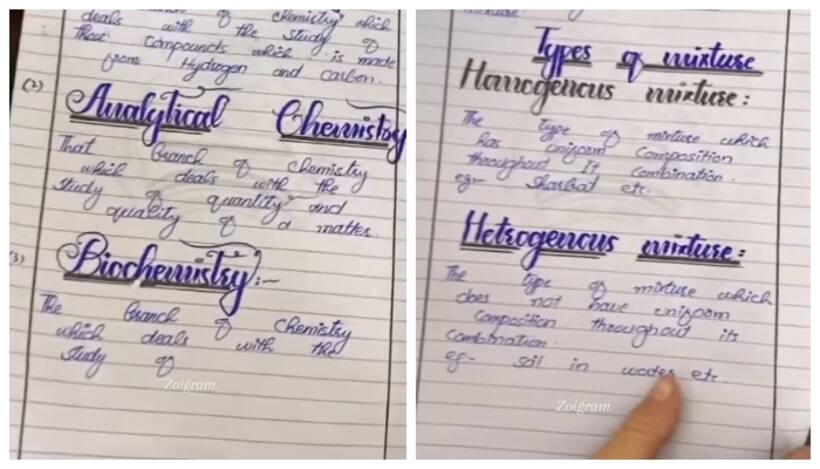 deals with the study of
those compounds which is made
from Hydrogen and carbon.
(2)
Analytical Chemistry
That branch of chemistry
which deals with the
study of quantity and
quality of a matter.
(3)
Biochemistry:-
The branch of chemistry
which deals with the
study of
Zoigram
Types of mixture
Homogenous mixture:
The type of mixture which
has uniform composition
throughout It combination.
eg- Sharbat etc.
Hetrogenous mixture:
The type of mixture which
does not have uniform
composition throughout its
combination.
eg- soil in water etc.
Zoigram